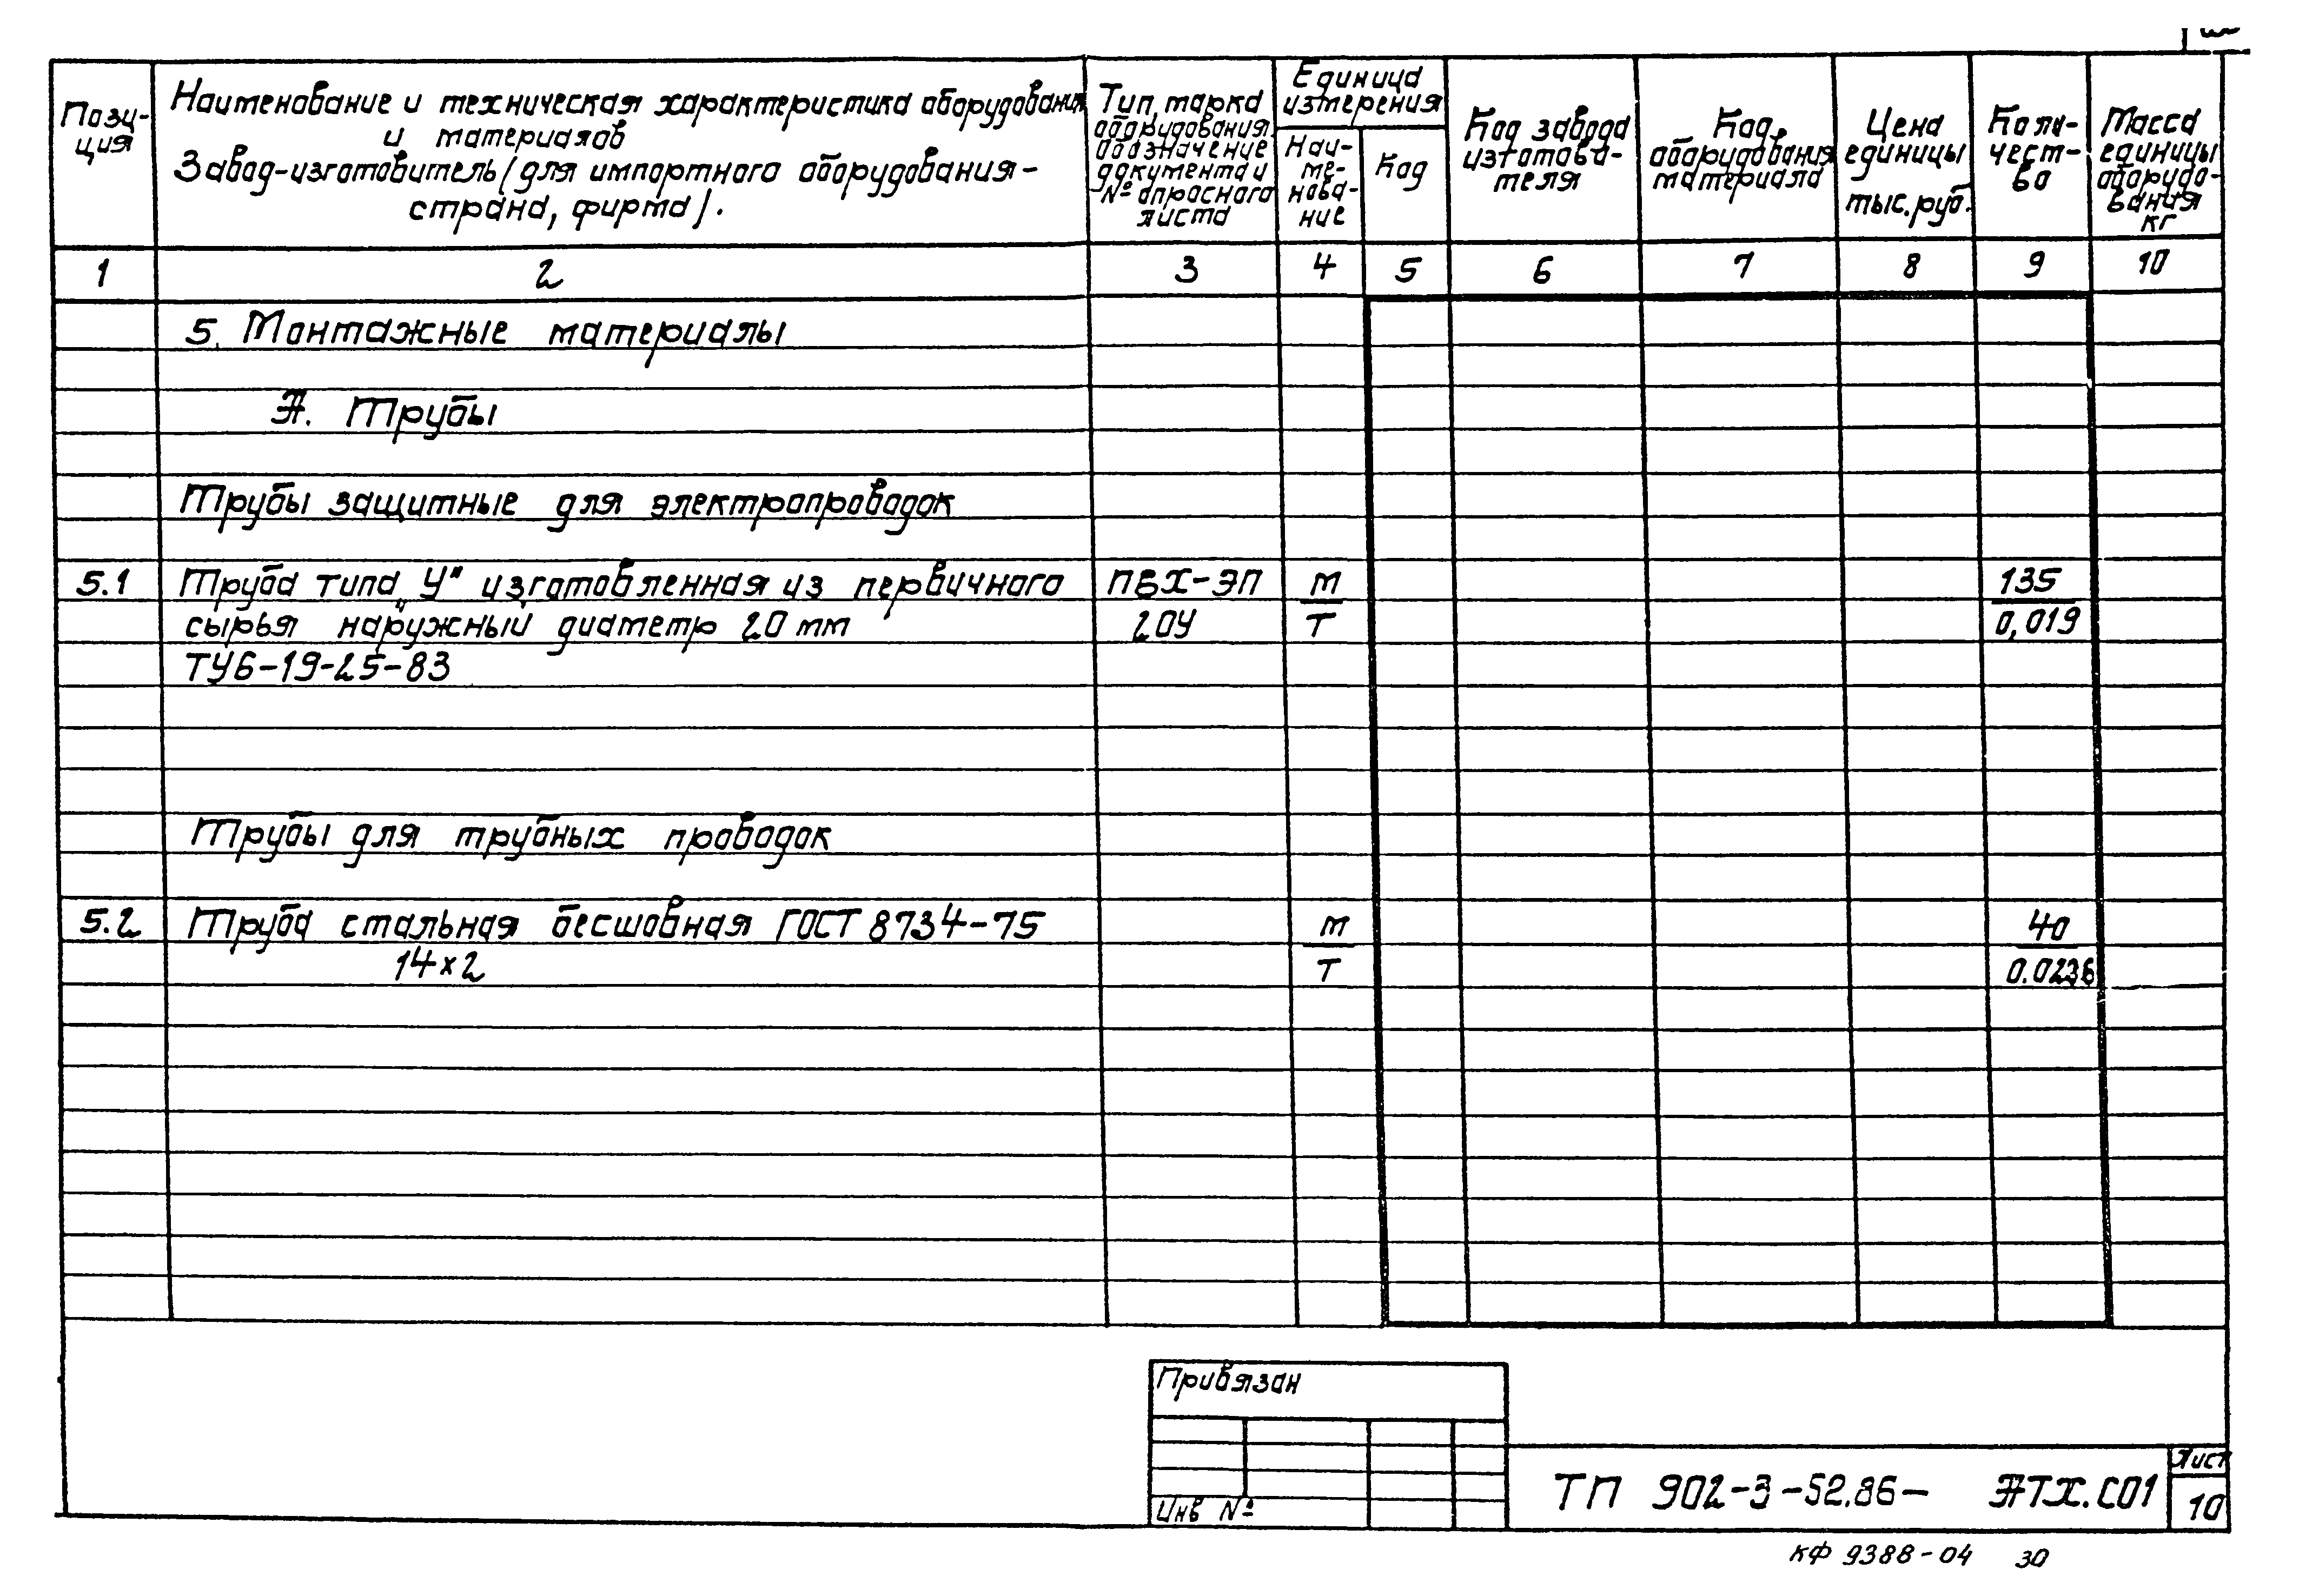 Пози-
ция
Наименование и техническая характеристика оборудования
и материалов
Завод-изготовитель (для импортного оборудования-
страна, фирма).
Тип, марка
оборудования.
обозначение
документа и
№ опросного
листа
Единица
измерения
Наи-
ме-
нова-
ние
Код
Код завода
изготови-
теля
Код
оборудования,
материала
Цена
единицы
тыс.руб.
Коли-
чест-
во
Масса
единицы
оборудо-
вания
кг
1 2 3 4 5 6 7 8 9 10
5. Монтажные материалы
А. Трубы
Трубы защитные для электропроводок
5.1 Труба типа „У" изготовленная из первичного ПВХ-ЭП м 135
сырья наружный диаметр 20 мм 20У т 0,019
ТУ6-19-25-83
Трубы для трубных проводок
5.2 Труба стальная бесшовная ГОСТ 8734-75 м 40
14×2 т 0.0236
Привязан
Инв №
ТП 902-3-52.86- АТХ.СО1
Лист
10
КФ 9388-04 30